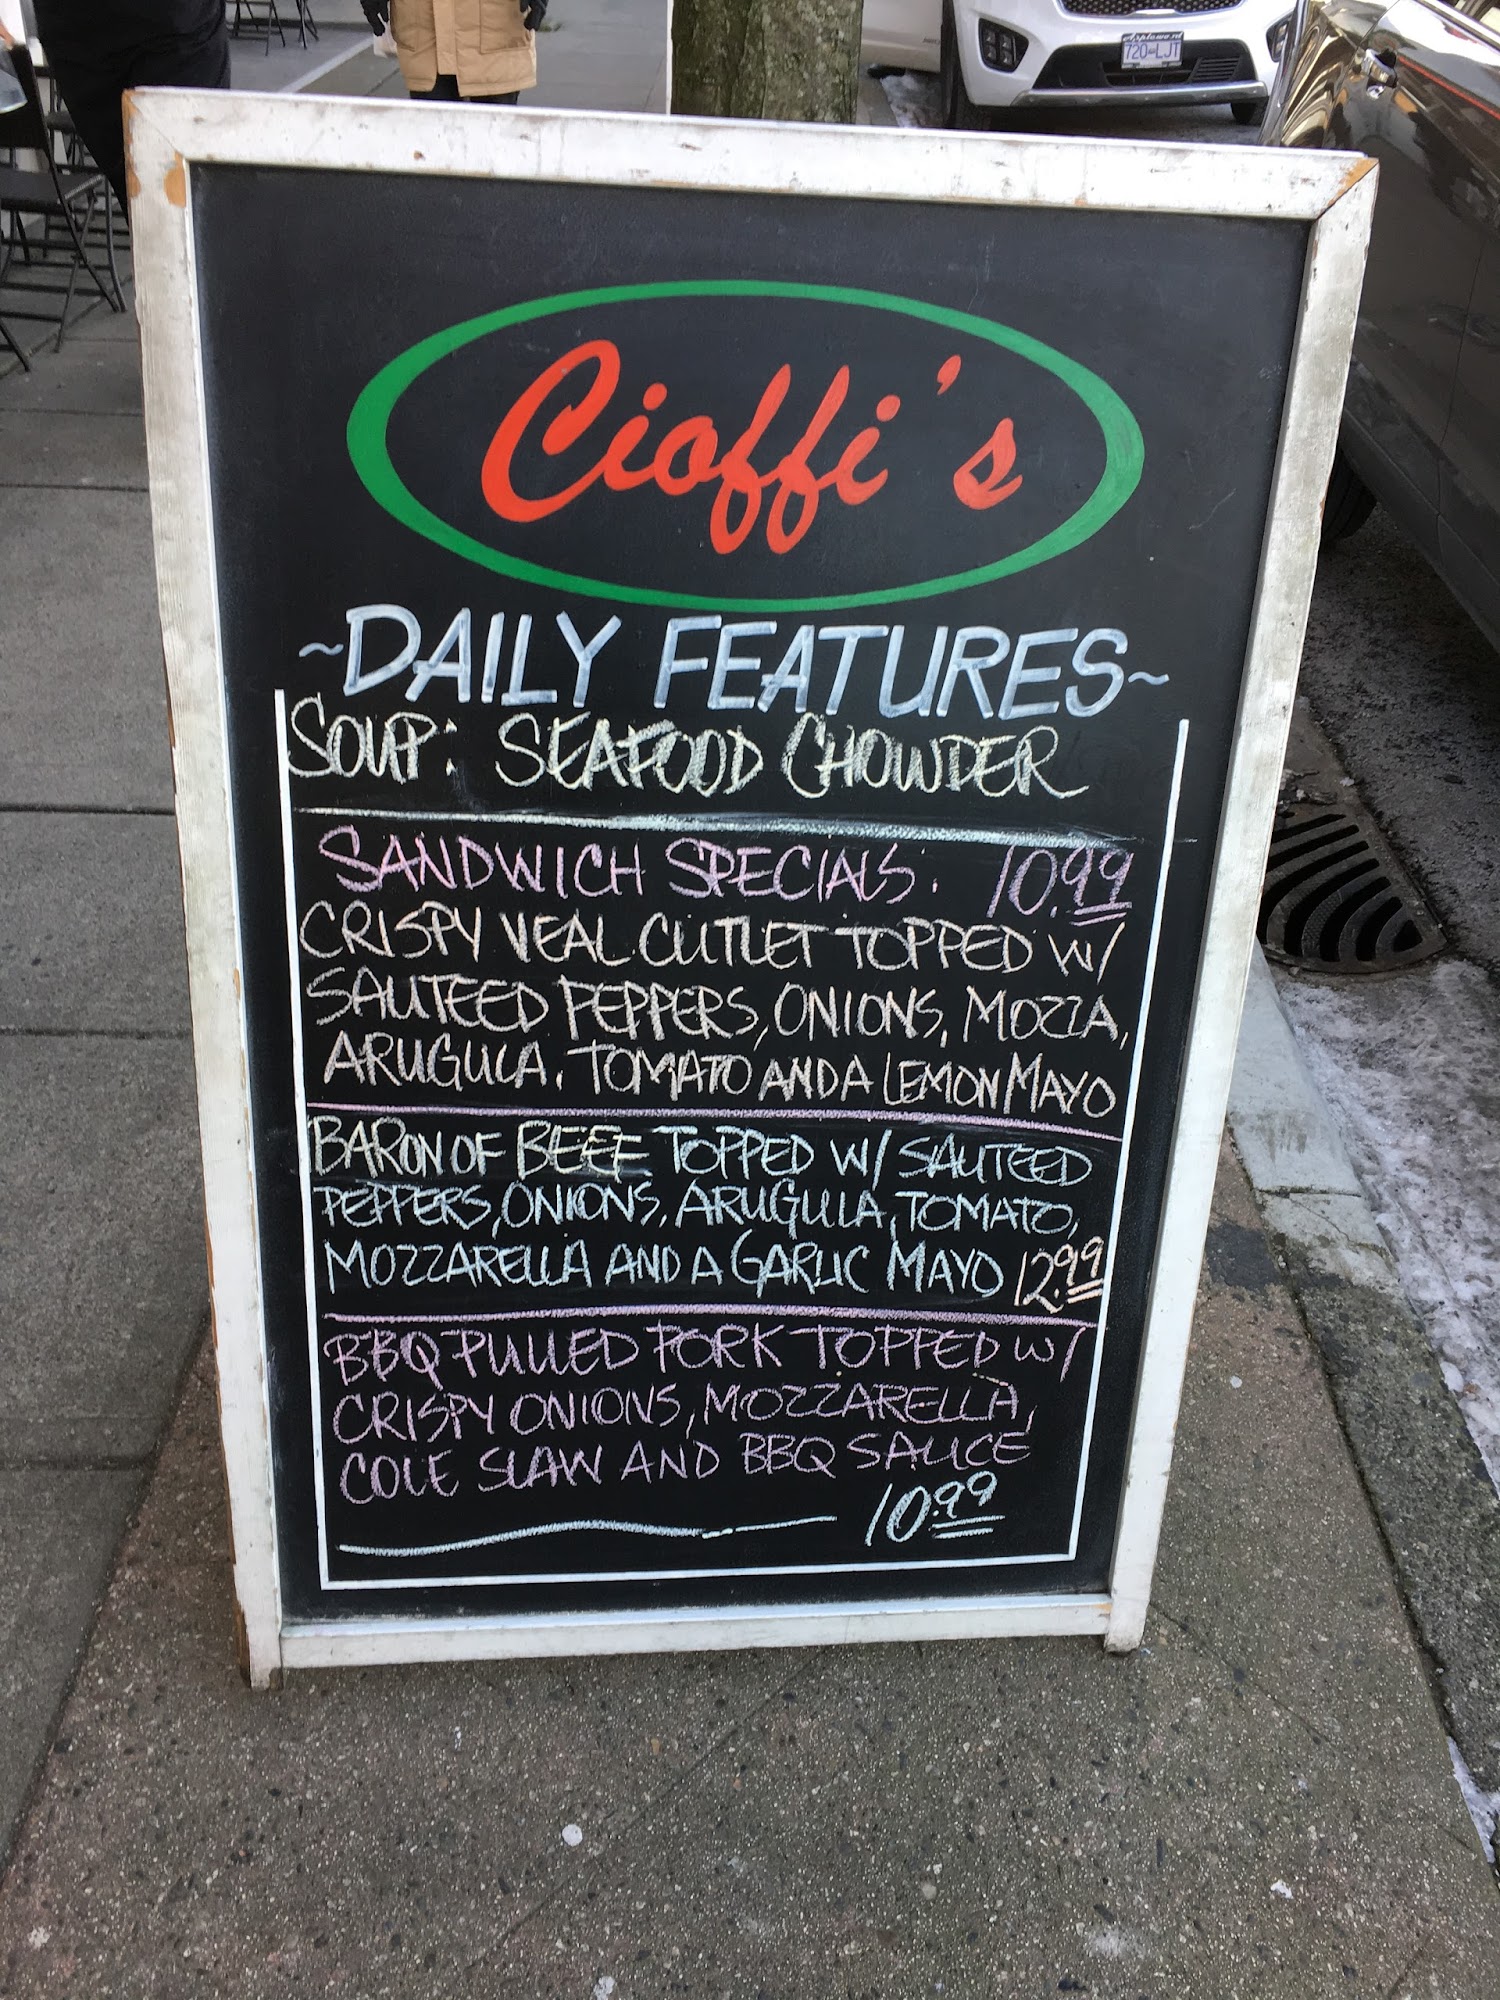 720-LJT
Cioffi's
~DAILY FEATURES~
SOUP: SEAFOOD CHOWDER
SANDWICH SPECIALS: 10.99
CRISPY VEAL CUTLET TOPPED W/
SAUTEED PEPPERS, ONIONS, MOZZA,
ARUGULA, TOMATO AND A LEMON MAYO
BARON OF BEEF TOPPED W/ SAUTEED
PEPPERS, ONIONS, ARUGULA, TOMATO,
MOZZARELLA AND A GARLIC MAYO 12.99
BBQ PULLED PORK TOPPED W/
CRISPY ONIONS, MOZZARELLA,
COLE SLAW AND BBQ SAUCE
10.99